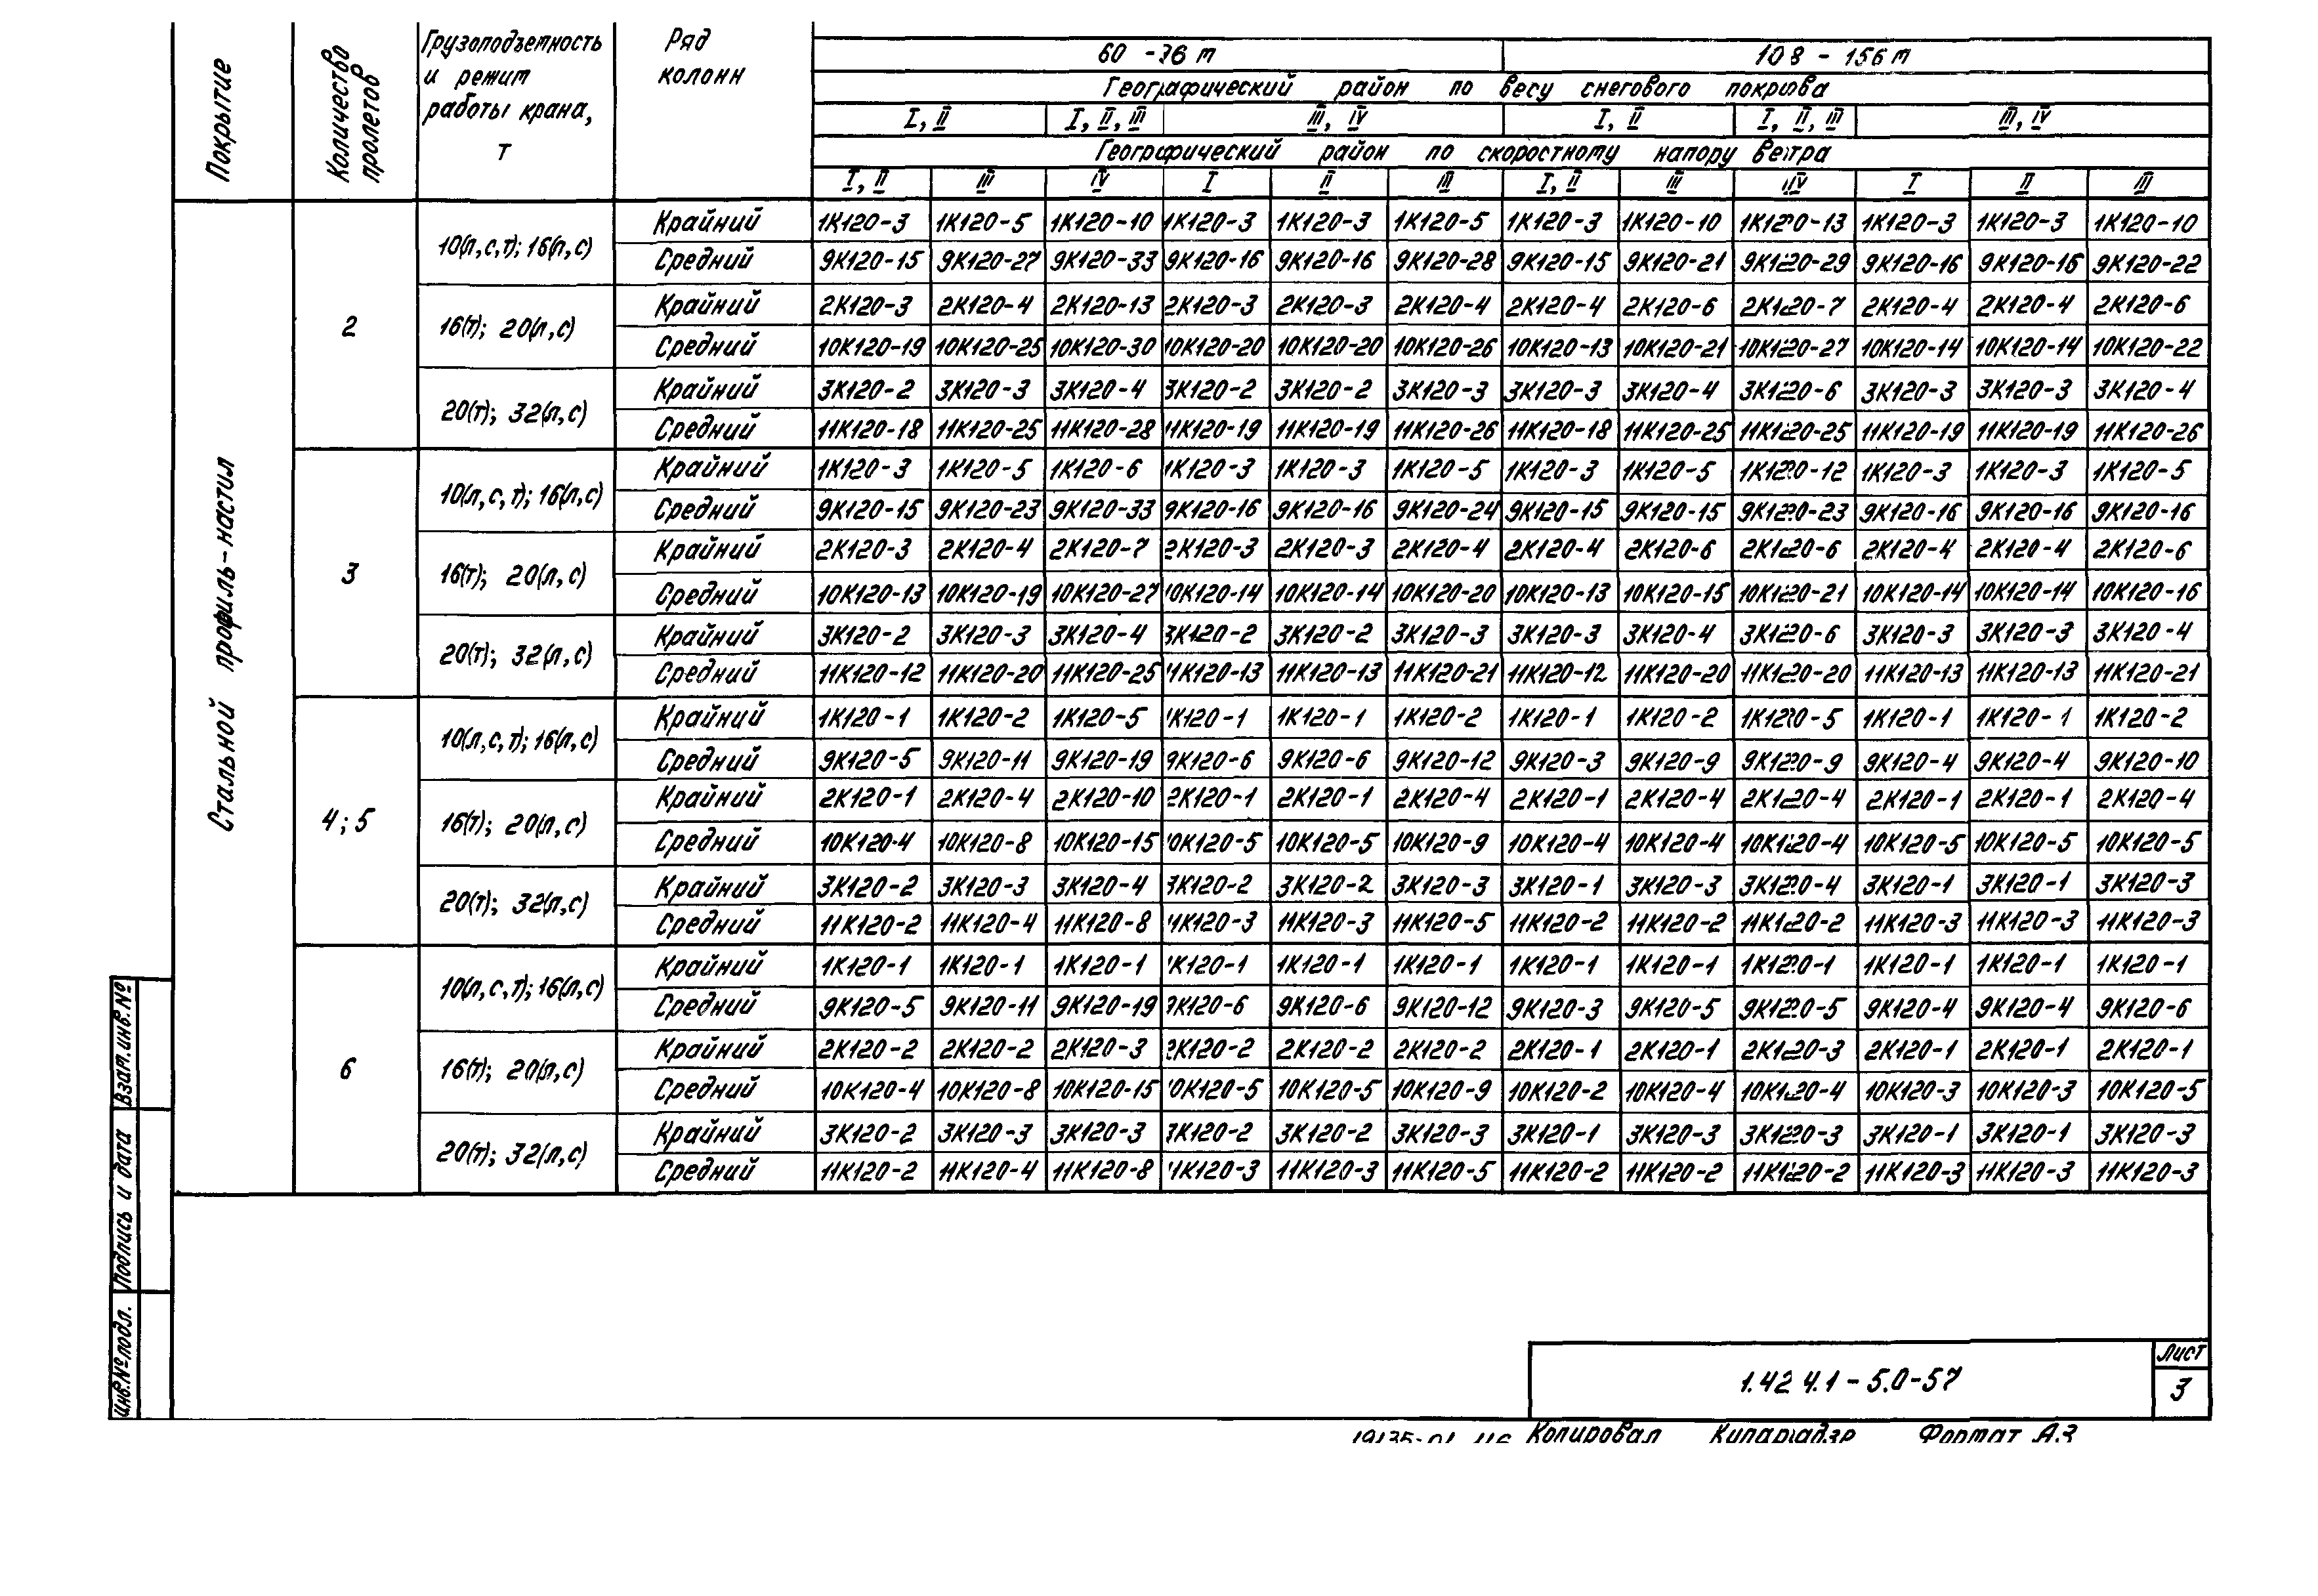 Покрытие
Количество пролетов
Грузоподъемность и режим работы крана, т
Ряд колонн
60 - 96 м
108 - 156 м
Географический район по весу снегового покрова
I, II I, II, III III, IV I, II I, II, III III, IV
Географический район по скоростному напору ветра
I, II III IV I II III I, II III IV I II III
Стальной профиль-настил
2
10(л,с,т); 16(л,с)
Крайний 1К120-3 1К120-5 1К120-10 1К120-3 1К120-3 1К120-5 1К120-3 1К120-10 1К120-13 1К120-3 1К120-3 1К120-10
Средний 9К120-15 9К120-27 9К120-33 9К120-16 9К120-16 9К120-28 9К120-15 9К120-21 9К120-29 9К120-16 9К120-16 9К120-22
16(т); 20(л,с)
Крайний 2К120-3 2К120-4 2К120-13 2К120-3 2К120-3 2К120-4 2К120-4 2К120-6 2К120-7 2К120-4 2К120-4 2К120-6
Средний 10К120-19 10К120-25 10К120-30 10К120-20 10К120-20 10К120-26 10К120-13 10К120-21 10К120-27 10К120-14 10К120-14 10К120-22
20(т); 32(л,с)
Крайний 3К120-2 3К120-3 3К120-4 3К120-2 3К120-2 3К120-3 3К120-3 3К120-4 3К120-6 3К120-3 3К120-3 3К120-4
Средний 11К120-18 11К120-25 11К120-28 11К120-19 11К120-19 11К120-26 11К120-18 11К120-25 11К120-25 11К120-19 11К120-19 11К120-26
3
10(л,с,т); 16(л,с)
Крайний 1К120-3 1К120-5 1К120-6 1К120-3 1К120-3 1К120-5 1К120-3 1К120-5 1К120-12 1К120-3 1К120-3 1К120-5
Средний 9К120-15 9К120-23 9К120-33 9К120-16 9К120-16 9К120-24 9К120-15 9К120-15 9К120-23 9К120-16 9К120-16 9К120-16
16(т); 20(л,с)
Крайний 2К120-3 2К120-4 2К120-7 2К120-3 2К120-3 2К120-4 2К120-4 2К120-6 2К120-6 2К120-4 2К120-4 2К120-6
Средний 10К120-13 10К120-19 10К120-27 10К120-14 10К120-14 10К120-20 10К120-13 10К120-15 10К120-21 10К120-14 10К120-14 10К120-16
20(т); 32(л,с)
Крайний 3К120-2 3К120-3 3К120-4 3К120-2 3К120-2 3К120-3 3К120-3 3К120-4 3К120-6 3К120-3 3К120-3 3К120-4
Средний 11К120-12 11К120-20 11К120-25 11К120-13 11К120-13 11К120-21 11К120-12 11К120-20 11К120-20 11К120-13 11К120-13 11К120-21
4; 5
10(л,с,т); 16(л,с)
Крайний 1К120-1 1К120-2 1К120-5 1К120-1 1К120-1 1К120-2 1К120-1 1К120-2 1К120-5 1К120-1 1К120-1 1К120-2
Средний 9К120-5 9К120-11 9К120-19 9К120-6 9К120-6 9К120-12 9К120-3 9К120-9 9К120-9 9К120-4 9К120-4 9К120-10
16(т); 20(л,с)
Крайний 2К120-1 2К120-4 2К120-10 2К120-1 2К120-1 2К120-4 2К120-1 2К120-4 2К120-4 2К120-1 2К120-1 2К120-4
Средний 10К120-4 10К120-8 10К120-15 10К120-5 10К120-5 10К120-9 10К120-4 10К120-4 10К120-4 10К120-5 10К120-5 10К120-5
20(т); 32(л,с)
Крайний 3К120-2 3К120-3 3К120-4 3К120-2 3К120-2 3К120-3 3К120-1 3К120-3 3К120-4 3К120-1 3К120-1 3К120-3
Средний 11К120-2 11К120-4 11К120-8 11К120-3 11К120-3 11К120-5 11К120-2 11К120-2 11К120-2 11К120-3 11К120-3 11К120-3
6
10(л,с,т); 16(л,с)
Крайний 1К120-1 1К120-1 1К120-1 1К120-1 1К120-1 1К120-1 1К120-1 1К120-1 1К120-1 1К120-1 1К120-1 1К120-1
Средний 9К120-5 9К120-11 9К120-19 9К120-6 9К120-6 9К120-12 9К120-3 9К120-5 9К120-5 9К120-4 9К120-4 9К120-6
16(т); 20(л,с)
Крайний 2К120-2 2К120-2 2К120-3 2К120-2 2К120-2 2К120-2 2К120-1 2К120-1 2К120-3 2К120-1 2К120-1 2К120-1
Средний 10К120-4 10К120-8 10К120-15 10К120-5 10К120-5 10К120-9 10К120-2 10К120-4 10К120-4 10К120-3 10К120-3 10К120-5
20(т); 32(л,с)
Крайний 3К120-2 3К120-3 3К120-3 3К120-2 3К120-2 3К120-3 3К120-1 3К120-3 3К120-3 3К120-1 3К120-1 3К120-3
Средний 11К120-2 11К120-4 11К120-8 11К120-3 11К120-3 11К120-5 11К120-2 11К120-2 11К120-2 11К120-3 11К120-3 11К120-3
Взам.инв.№
Подпись и дата
Инв.№подл.
1.424.1-5.0-57
Лист
3
19135-01 116 Копировал Формат А3